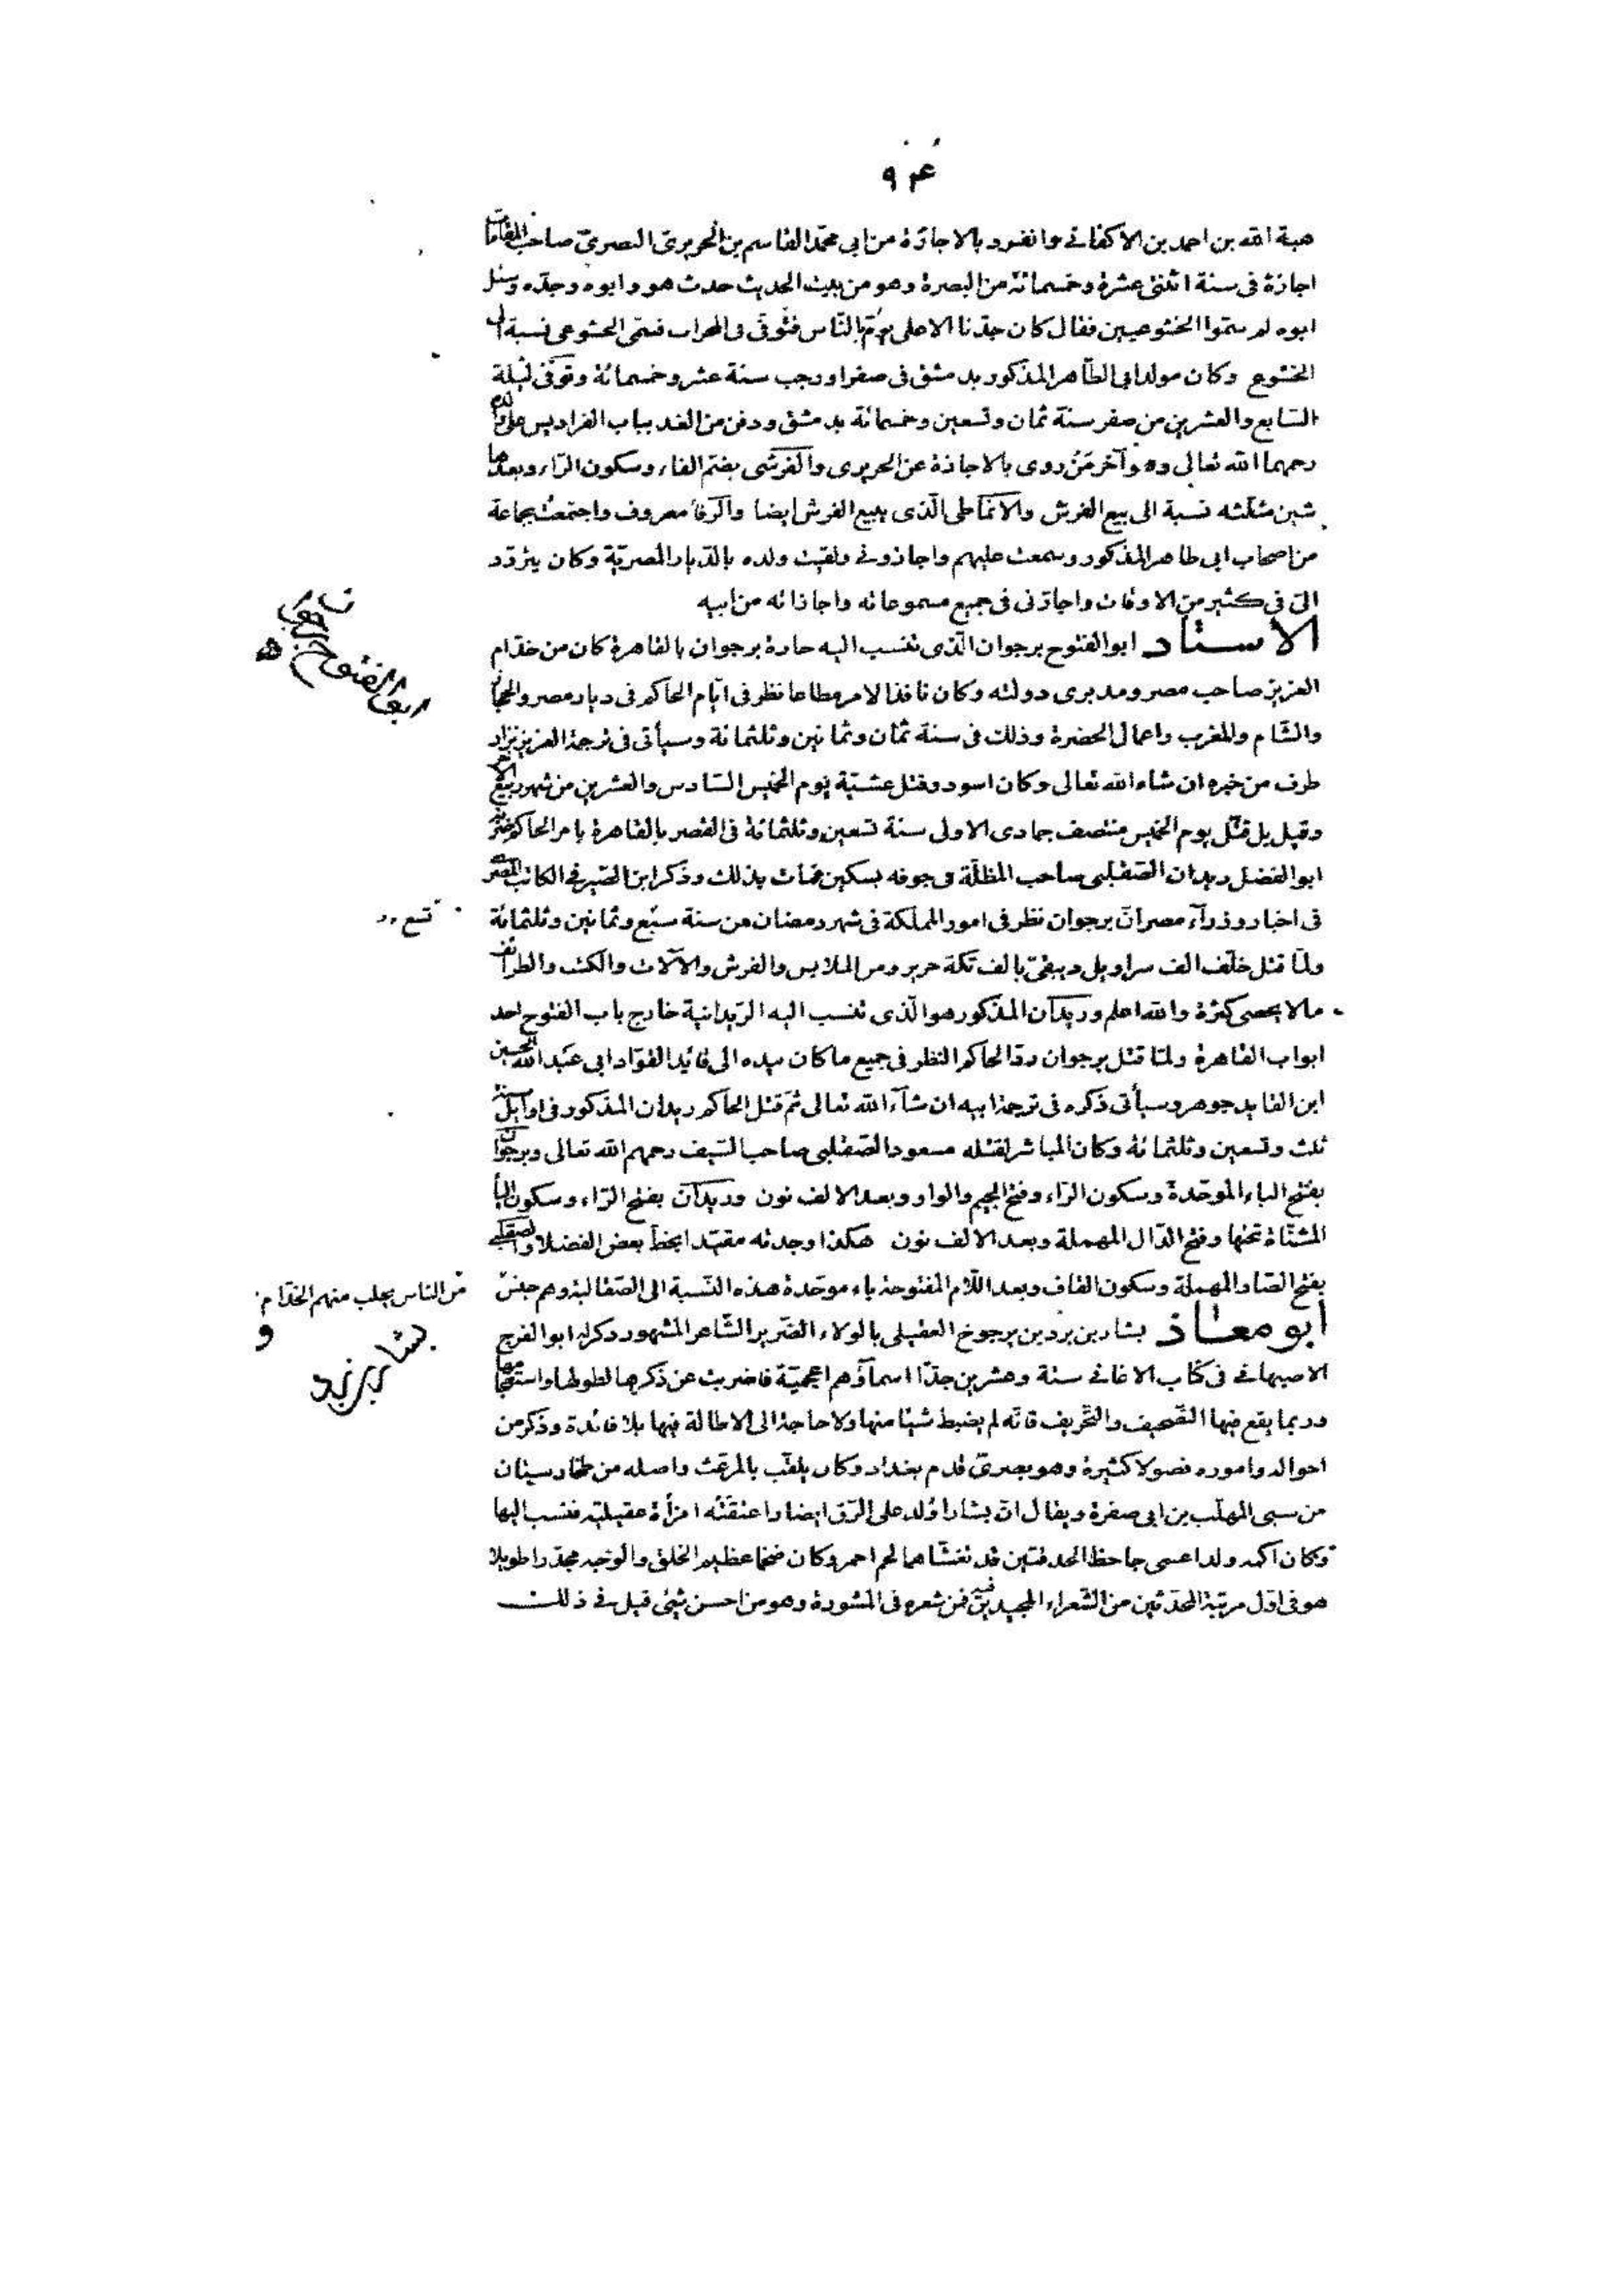 ٩٤
هبة الله بن احمد بن الاكفانے وانفرد بالاجازة من ابي محمّد القاسم بن الحريريّ البصريّ صاحب المقامات
اجازة فى سنة اثنتى عشرة وخمسمائة من البصرة وهو من بيت الحديث حدث هو وابوه وجدّه وسئل
ابوه لم سمّوا الخشوعيين فقال كان جدّنا الاعلى يؤمّ بالنّاس فتُوفّى فى المحراب فسمّى الخشوعى نسبة الى
الخشوع وكان مولد ابى الطّاهر المذكور بدمشق فى صفر او رجب سنة عشر وخمسمائة وتوفّى ليلة
السّابع والعشرين من صفر سنة ثمان وتسعين وخمسمائة بدمشق ودفن من الغد بباب الفراديس على والده
رحمهما الله تعالى وهو آخر مَنْ روى بالاجازة عن الحريرى والفرشى بضم الفاء وسكون الرّاء وبعدها
شين مثلّثه نسبة الى بيع الفرش والانماطى الّذى يبيع الفرش ايضا والرفّا معروف واجتمعتُ بجماعة
من اصحاب ابى طاهر المذكور وسمعت عليهم واجازونى ولقيت ولده بالدّيار المصريّة وكان يتردّد
الىّ فى كثير من الاوقات واجازنى فى جميع مسموعاته واجازاته من ابيه
الاستاد ابو الفتوح برجوان الّذى تنسب اليه حارة برجوان بالقاهرة كان من خدّام
العزيز صاحب مصر ومدبرى دولته وكان نافذ الامر مطاعا نظر فى ايّام الحاكم فى ديار مصر والحجاز
والشّام والمغرب واعمال الحضرة وذلك فى سنة ثمان وثمانين وثلثمائة وسيأتى فى ترجمة العزيز نزار
طرف من خبره ان شاء الله تعالى وكان اسود وقتل عشيّة يوم الخميس السّادس والعشرين من شهر ربيع الآخر
وقيل بل قتل يوم الخميس منتصف جمادى الاولى سنة تسعين وثلثمائة فى القصر بالقاهرة بامر الحاكم ضربه
ابو الفضل ريدان الصّقلبى صاحب المظلّة فى جوفه بسكين فمات بذلك وذكر ابن الصّيرفى الكاتب المصرى
فى اخبار وزرآء مصر انّ برجوان نظر فى امور المملكة فى شهر رمضان من سنة سبع وثمانين وثلثمائة
ولمّا قتل خلّف الف سراويل دبيقىّ بالف تكّة حرير ومن الملابس والفرش والآلات والكتب والطرائف
مالا يحصى كثرة والله اعلم وريدان المذكور هو الّذى تنسب اليه الرّيدانية خارج باب الفتوح احد
ابواب القاهرة ولمّا قتل برجوان ردّ الحاكم النظر فى جميع ما كان بيده الى قائد القوّاد ابى عبد الله الحسين
ابن القايد جوهر وسيأتى ذكره فى ترجمة ابيه ان شآء الله تعالى ثمّ قتل الحاكم ريدان المذكور فى اوايل سنة
ثلث وتسعين وثلثمائة وكان المباشر لقتله مسعود الصّقلبى صاحب السّيف رحمهم الله تعالى وبرجوان
بفتح الباء الموحّدة وسكون الرّاء وفتح الجيم والواو وبعد الالف نون وريدان بفتح الرّاء وسكون اليا
المثنّاة تحتها وفتح الدّال المهملة وبعد الالف نون هكذا وجدته مقيّدا بخطّ بعض الفضلا والصقلبى
بفتح الصّاد المهملة وسكون القاف وبعد اللّام المفتوحة باء موحّدة هذه النّسبة الى الصّقالبة وهم جنس
ابو معاذ بشار بن برد بن يرجوخ العقيلى بالولاء الضّرير الشّاعر المشهور ذكر له ابو الفرج
الاصبهانے فى كتاب الاغانے ستة وعشرين جدّا اسماؤهم اعجميّة فاضربت عن ذكرها لطولها واستعجامها
وربما يقع فيها التّصحيف والتّحريف فانّه لم يضبط شيئا منها ولا حاجة الى الاطالة فيها بلا فائدة وذكر من
احواله واموره فصولا كثيرة وهو بصرىّ قدم بغداد وكان يلقّب بالمرعّث واصله من طخارستان
من سبى المهلّب بن ابى صفرة ويقال انّ بشارا ولد على الرّق ايضا واعتقته امرأة عقيليّة فنسب اليها
وكان اكمه ولد اعمى جاحظ الحدقتين قد تغشاهما لحم احمر وكان ضخما عظيم الخلق والوجه مجدّرا طويلا
هو فى اوّل مرتبة المحدثين من الشّعراء المجيدين فيه فمن شعره فى المشورة وهو من احسن شيئ قيل فے ذلك
ابو الفتوح برجوان
تسع
من الناس يجلب منهم الخدّام
و
بشار بن برد